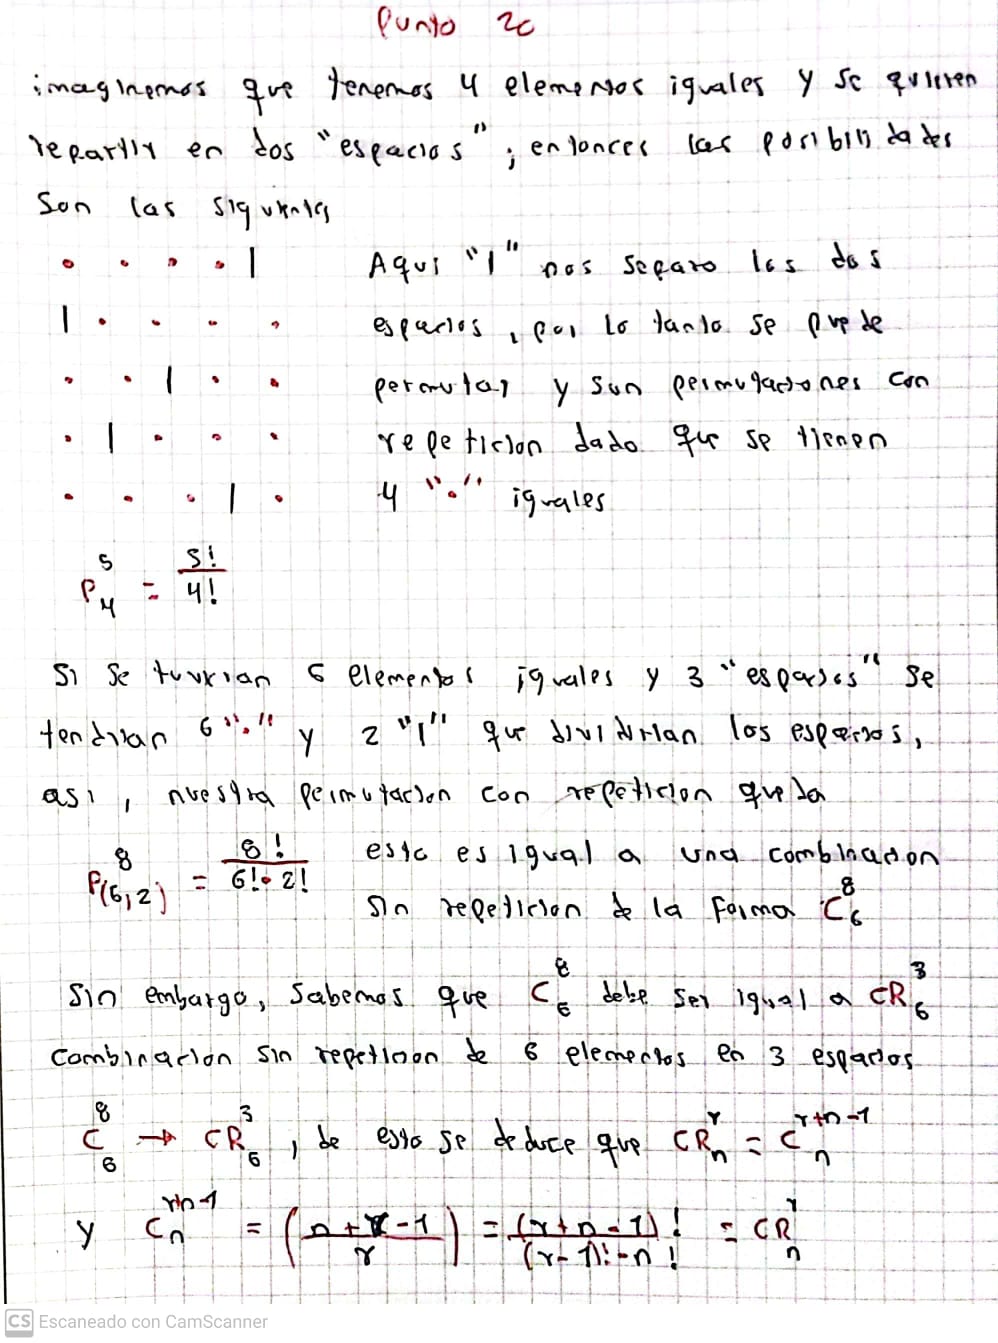 Punto 2c
imaginemos que tenemos 4 elementos iguales y se quieren
repartir en dos "espacios"; entonces las posibilidades
Son las siguientes
. . . . | Aqui "|" nos separa los dos
| . . . . espacios, por lo tanto se puede
. . | . . permutar y son permutaciones con
. | . . . repeticion dado que se tienen
. . . | . 4 "." iguales
P₄⁵ = 5!/4!
Si se tuvieran 6 elementos iguales y 3 "espacios" se
tendrian 6 "." y 2 "|" que dividirian los espacios,
asi, nuestra permutacion con repeticion queda
P₍₆,₂₎⁸ = 8!/6!·2! esto es igual a una combinacion
sin repeticion de la forma C₆⁸
Sin embargo, sabemos que C₆⁸ debe ser igual a CR₆³
combinacion sin repeticion de 6 elementos en 3 espacios
C₆⁸ → CR₆³, de esto se deduce que CRₙʳ = Cₙʳ⁺ⁿ⁻¹
y Cₙʳ⁺ⁿ⁻¹ = (n+r-1 / r) = (r+n-1)!/(r-1)!·n! = CRₙʳ
CS Escaneado con CamScanner